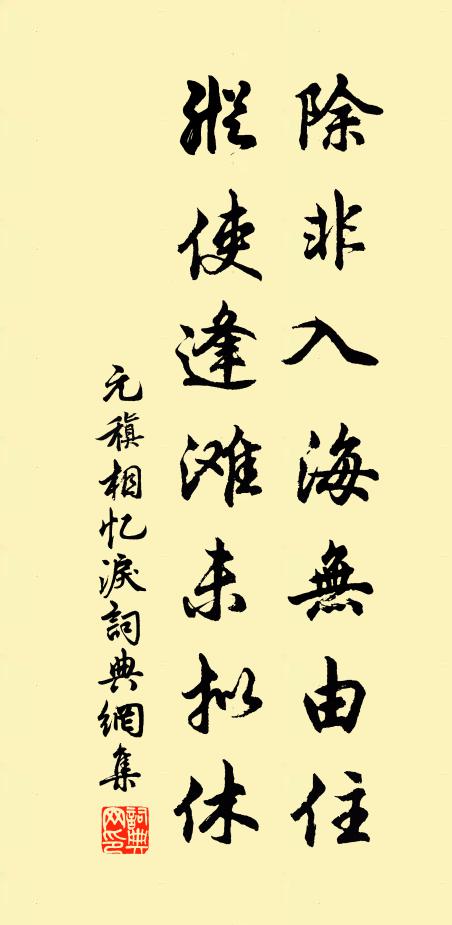 除非入海無由住
縱使逢滩未拟休
元稹相忆淚詞典網集
詞典网印